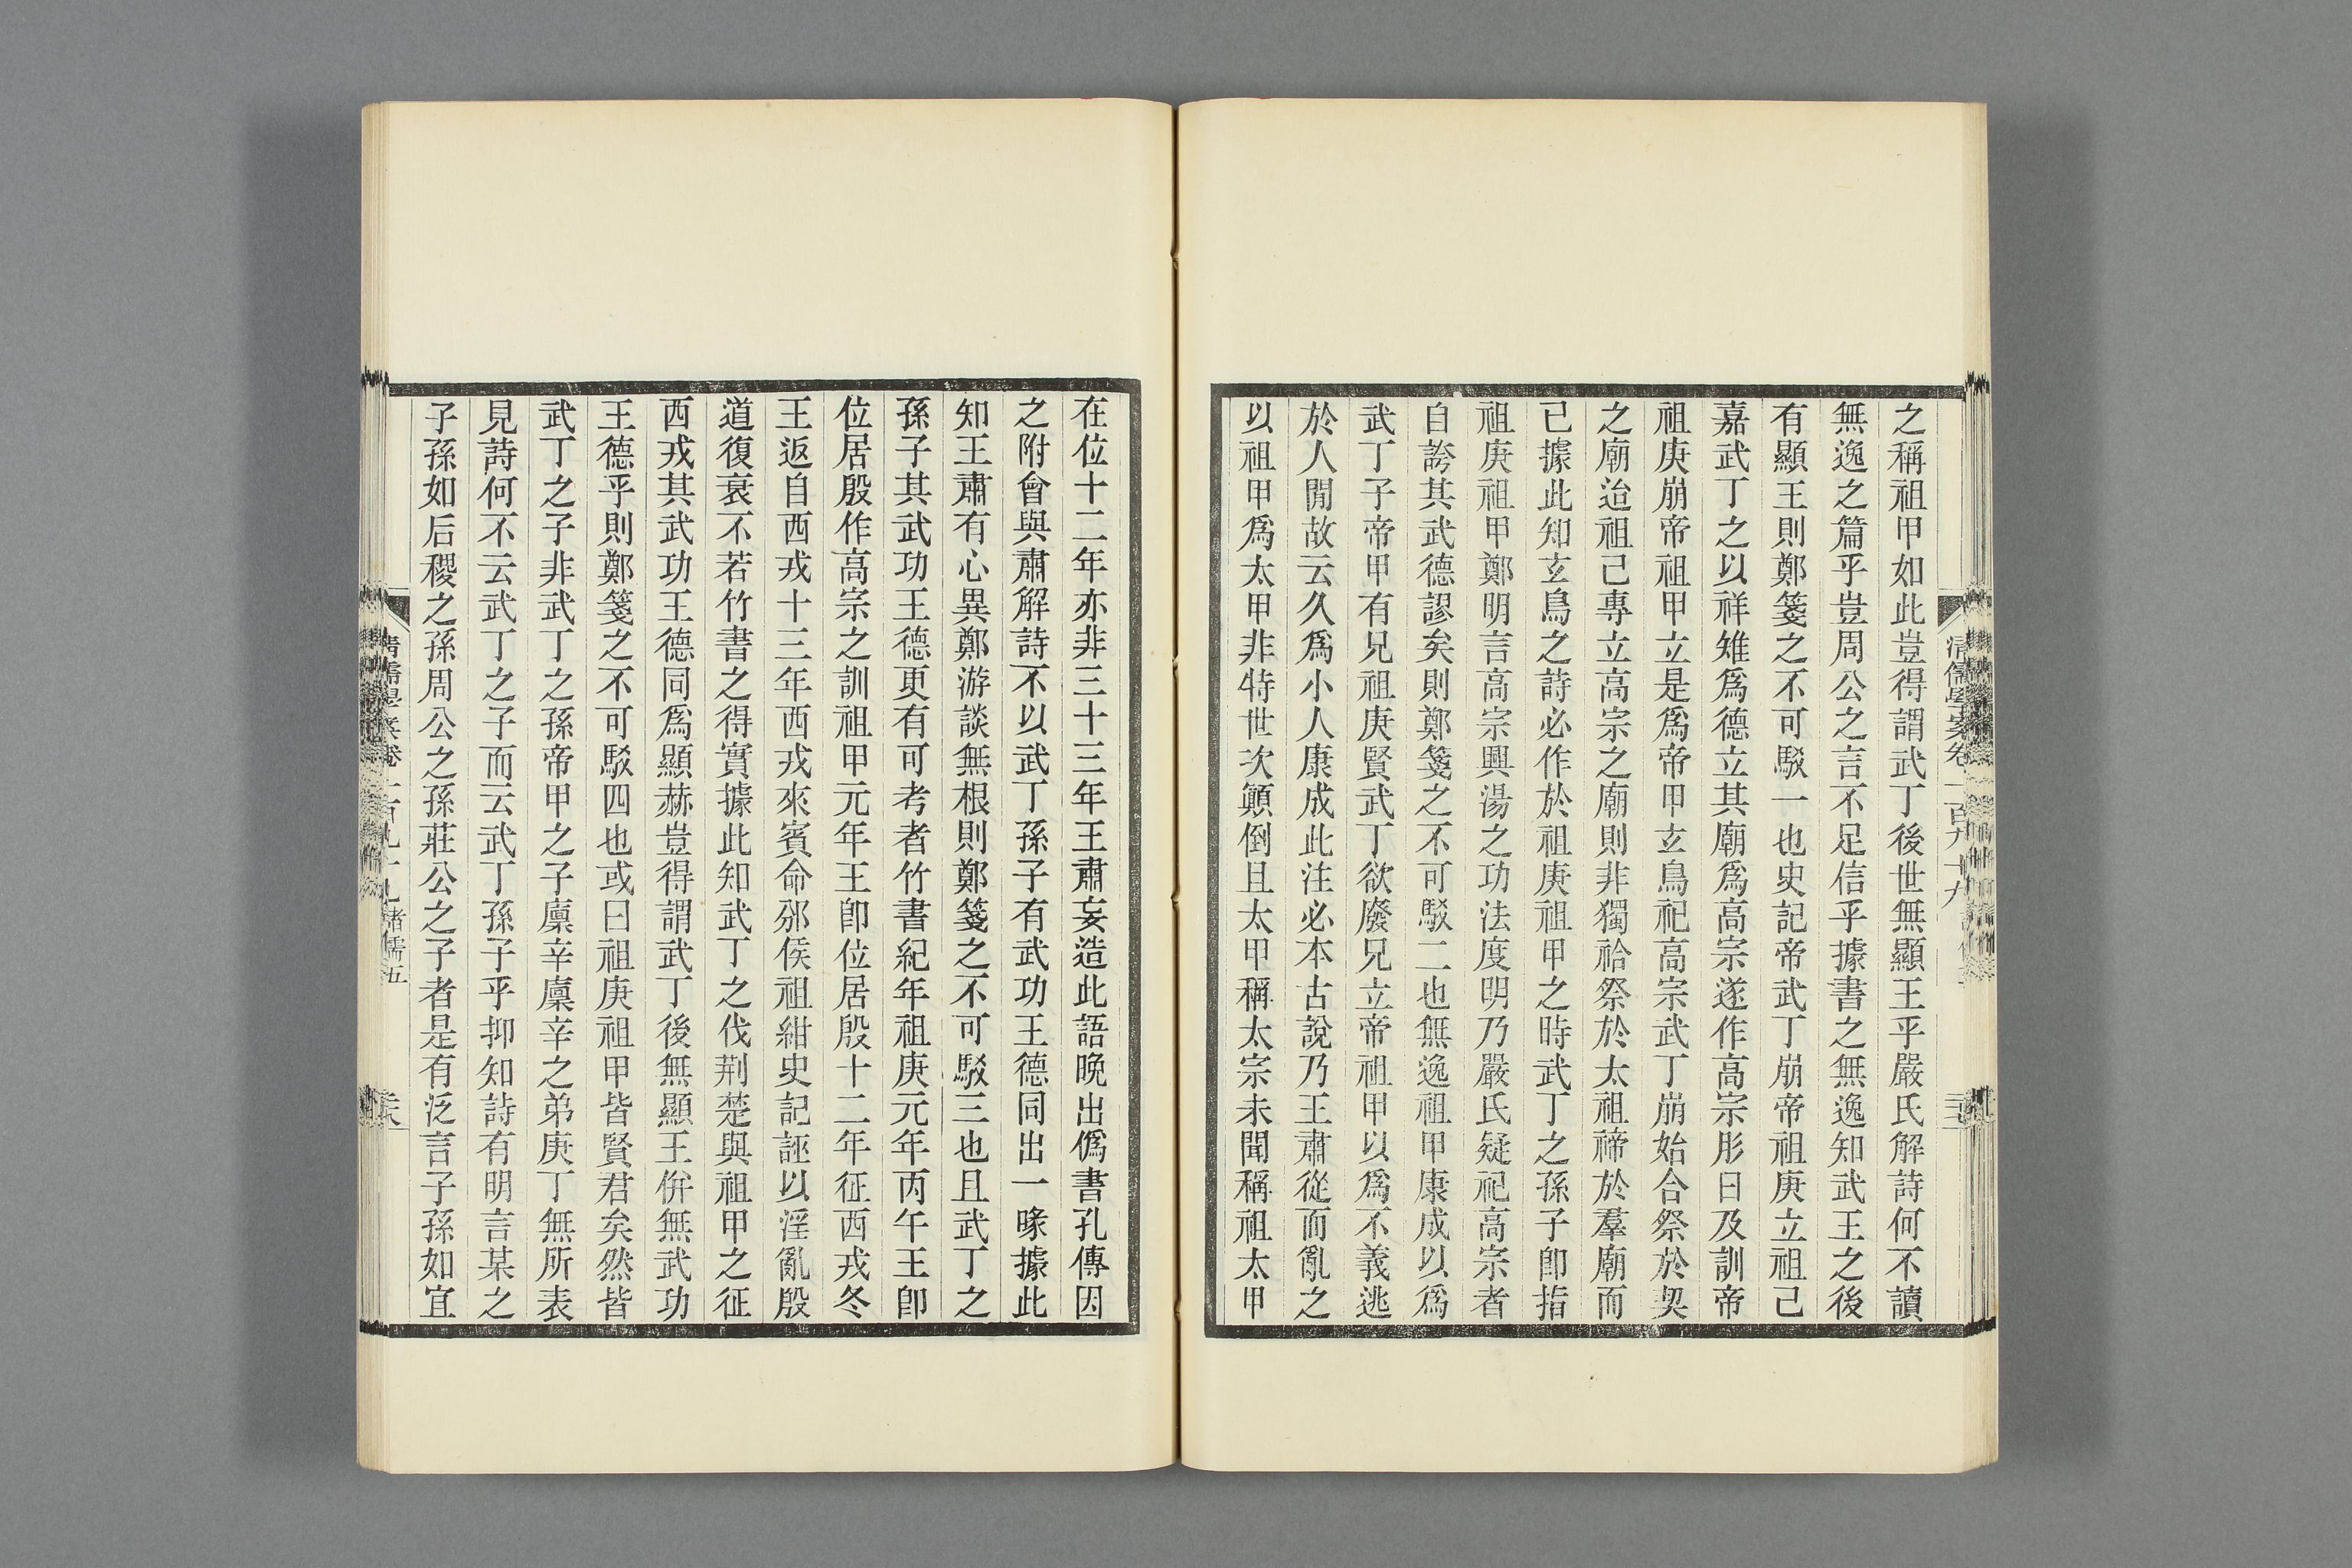 之稱祖甲如此豈得謂武丁後世無顯王乎嚴氏解詩何不讀
無逸之篇乎豈周公之言不足信乎據書之無逸知武王之後
有顯王則鄭箋之不可駁一也史記帝武丁崩帝祖庚立祖己
嘉武丁之以祥雉爲德立其廟爲高宗遂作高宗肜日及訓帝
祖庚崩帝祖甲立是爲帝甲玄鳥祀高宗武丁崩始合祭於契
之廟迨祖己專立高宗之廟則非獨祫祭於太祖禘於羣廟而
已據此知玄鳥之詩必作於祖庚祖甲之時武丁之孫子卽指
祖庚祖甲鄭明言高宗興湯之功法度明乃嚴氏疑祀高宗者
自誇其武德謬矣則鄭箋之不可駁二也無逸祖甲康成以爲
武丁子帝甲有兄祖庚賢武丁欲廢兄立帝祖甲以爲不義逃
於人閒故云久爲小人康成此注必本古說乃王肅從而亂之
以祖甲爲太甲非特世次顛倒且太甲稱太宗未聞稱祖太甲
清儒學案卷一百九十九
在位十二年亦非三十三年王肅妄造此語晚出僞書孔傳因
之附會與肅解詩不以武丁孫子有武功王德同出一喙據此
知王肅有心異鄭游談無根則鄭箋之不可駁三也且武丁之
孫子其武功王德更有可考者竹書紀年祖庚元年丙午王卽
位居殷作高宗之訓祖甲元年王卽位居殷十二年征西戎冬
王返自西戎十三年西戎來賓命邠侯祖紺史記誣以淫亂殷
道復衰不若竹書之得實據此知武丁之伐荆楚與祖甲之征
西戎其武功王德同爲顯赫豈得謂武丁後無顯王倂無武功
王德乎則鄭箋之不可駁四也或曰祖庚祖甲皆賢君矣然皆
武丁之子非武丁之孫帝甲之子廩辛廩辛之弟庚丁無所表
見詩何不云武丁之子而云武丁孫子乎抑知詩有明言某之
子孫如后稷之孫周公之孫莊公之子者是有泛言子孫如宜
諸儒五